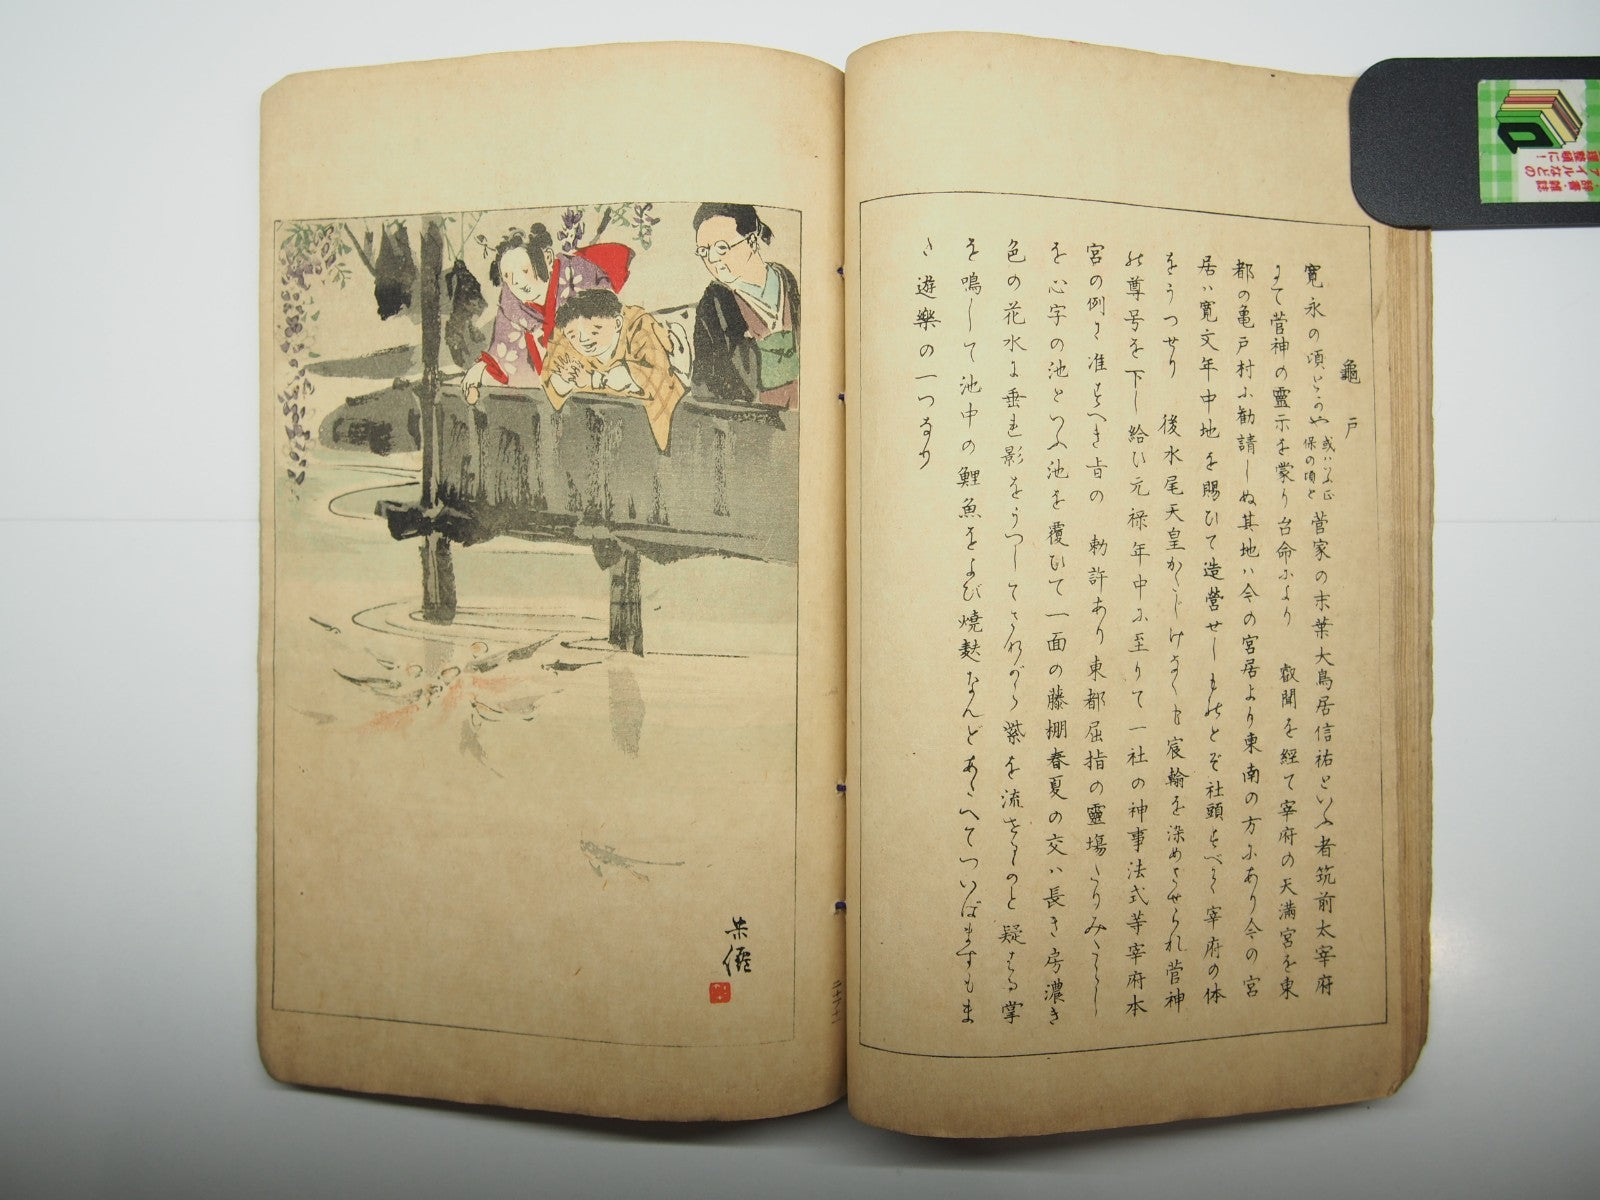 龜戸
寛永の頃とかや
或ハいふ正
保の頃と
菅家の末葉大鳥居信祐といふ者筑前太宰府
にて菅神の靈示を蒙り台命により 叡聞を経て宰府の天満宮を東
都の亀戸村に勧請しぬ其地ハ今の宮居より東南の方にあり今の宮
居ハ寛文年中地を賜ひて造営せしものとぞ社頭すべて宰府の体
をうつせり 後水尾天皇かしこくも宸翰を染めさせられ菅神
の尊号を下し給ひ元禄年中に至りて一社の神事法式等宰府本
宮の例に准すへき旨の 勅許あり東都屈指の靈場たり
を心字の池といふ池を覆ひて一面の藤棚春夏の交ハ長き房濃き
色の花水に垂れ影をうつしてさながら紫を流せしものと疑はる掌
を鳴して池中の鯉魚をよび焼麸なんどあたへてついばますもま
た遊樂の一つなり
二十六十一
辞書・雑誌
ファイルなどの
整理整頓に!